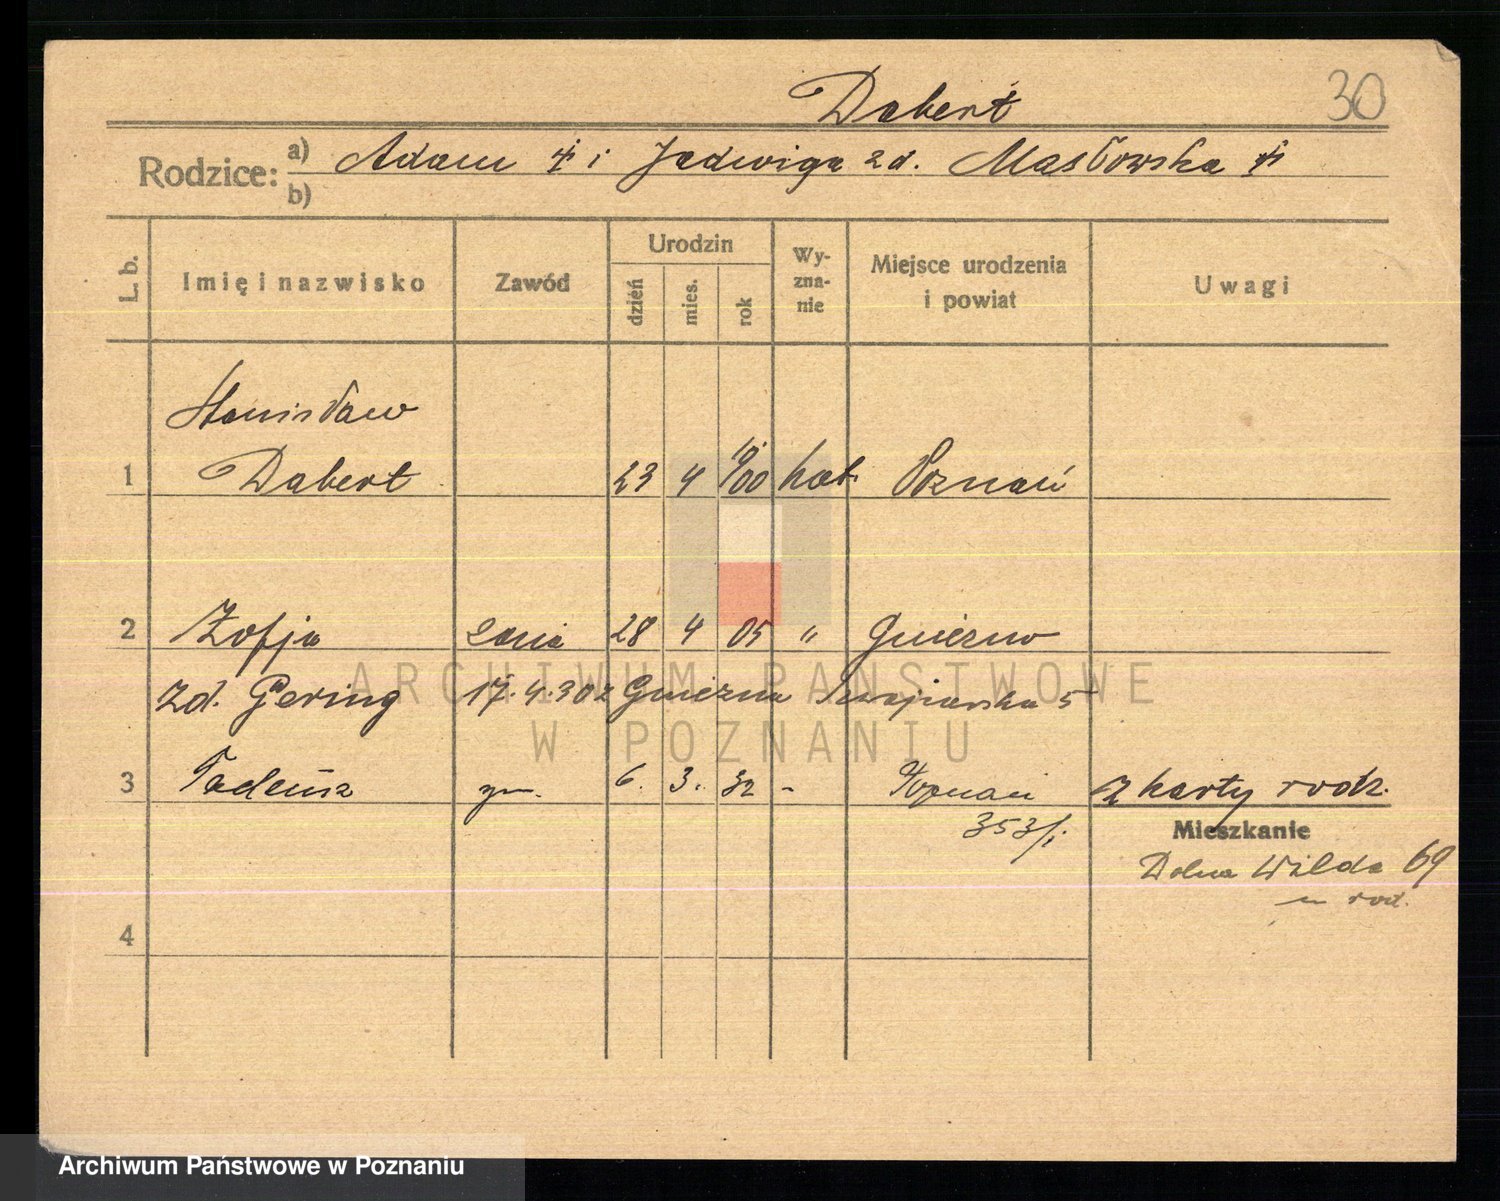 Dabert 30
Rodzice: a) Adam i Jadwiga zd. Masłowska
b)
L. b. Imię i nazwisko Zawód Urodzin dzień mies. rok Wy-zna-nie Miejsce urodzenia i powiat Uwagi
Stanisław
1 Dabert 23 4 1900 kat. Poznań
2 Zofja żona 28 4 05 " Gniezno
zd. Gering 17.4.30 z Gniezna 5
3 Tadeusz syn. 6. 3. 32 - Poznań z karty rodz.
353/i Mieszkanie
Dolna Wilda 69
4
ARCHIWUM PAŃSTWOWE
W POZNANIU
Archiwum Państwowe w Poznaniu